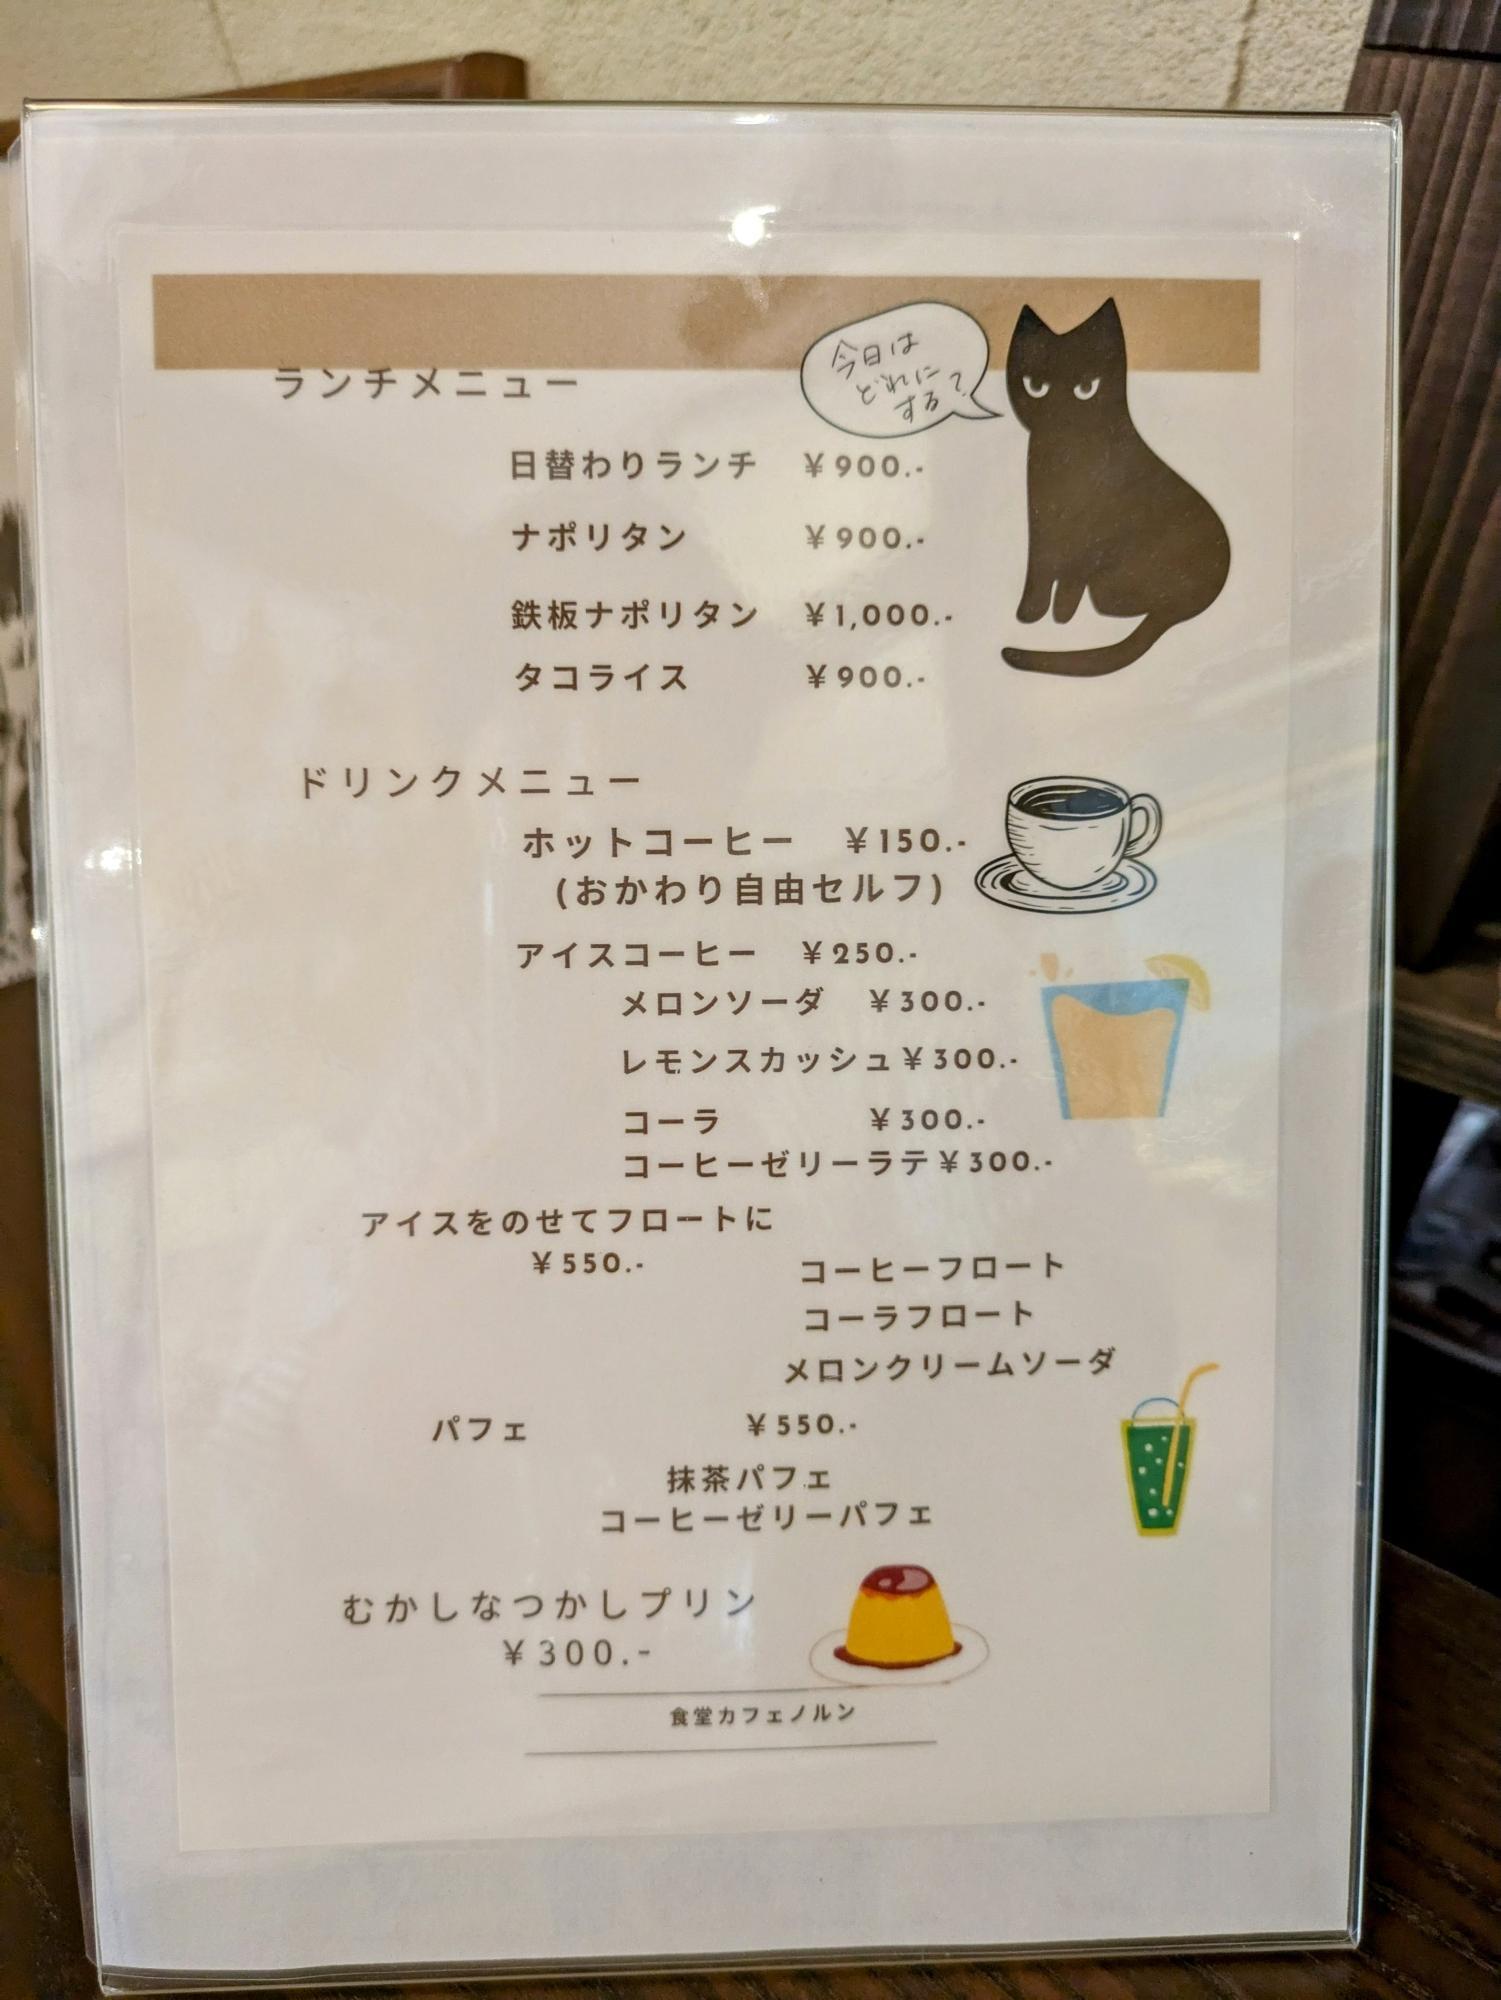 今日は
どれに
する？
ランチメニュー
日替わりランチ ¥900.-
ナポリタン ¥900.-
鉄板ナポリタン ¥1,000.-
タコライス ¥900.-
ドリンクメニュー
ホットコーヒー ¥150.-
(おかわり自由セルフ)
アイスコーヒー ¥250.-
メロンソーダ ¥300.-
レモンスカッシュ¥300.-
コーラ ¥300.-
コーヒーゼリーラテ¥300.-
アイスをのせてフロートに
¥550.-
コーヒーフロート
コーラフロート
メロンクリームソーダ
パフェ ¥550.-
抹茶パフェ
コーヒーゼリーパフェ
むかしなつかしプリン
¥300.-
食堂カフェノルン